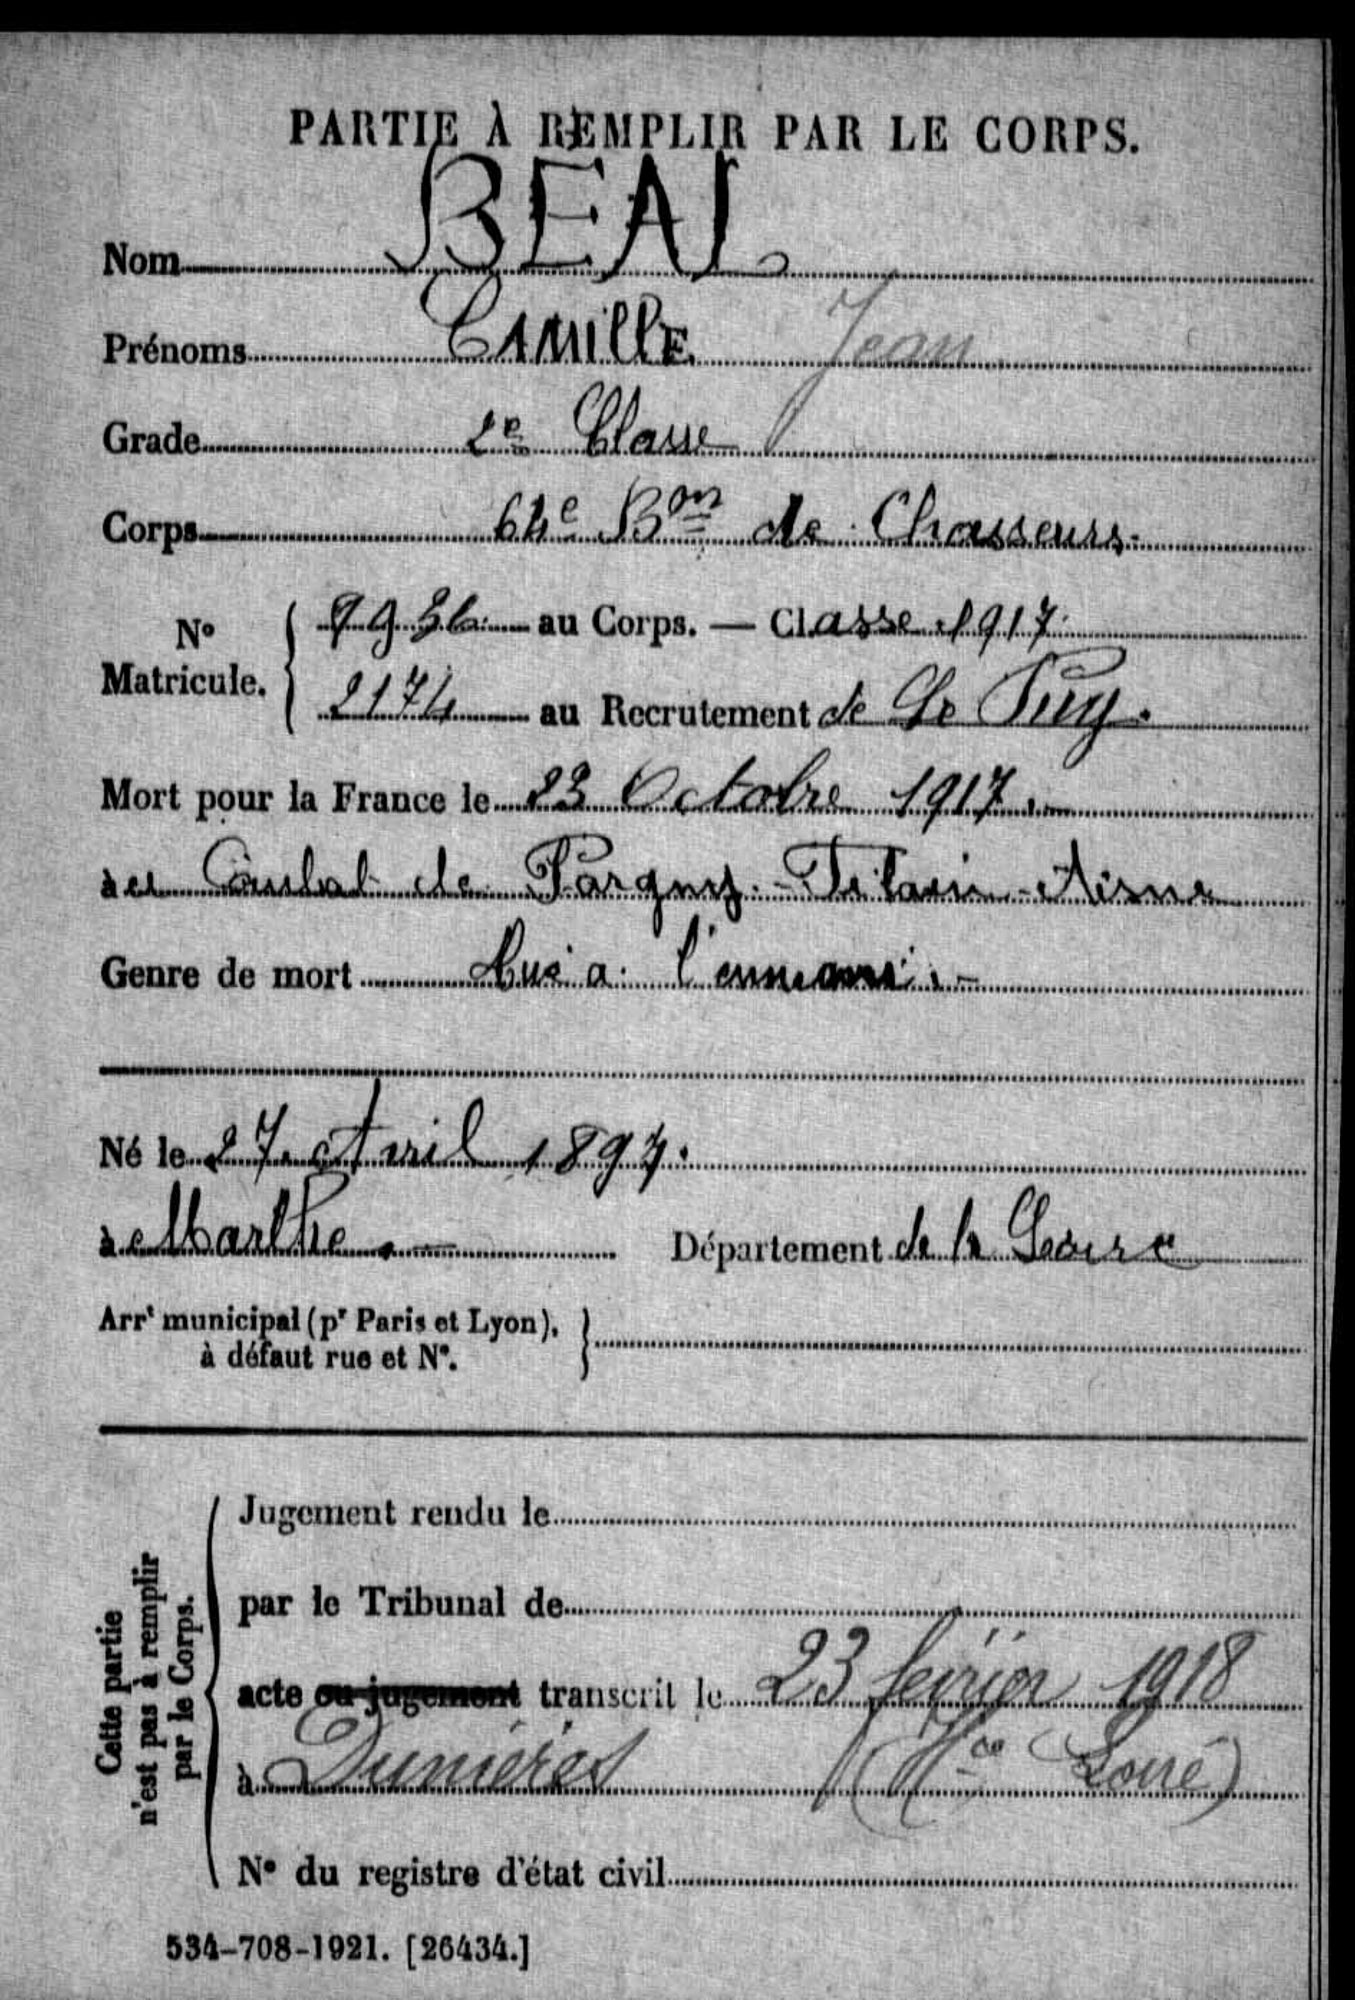 PARTIE À REMPLIR PAR LE CORPS.
Nom BEAL
Prénoms CAMILLE Jean
Grade 2e Classe
Corps 64e Bon de Chasseurs.
No Matricule. 9936 au Corps. — Classe 1917.
2174 au Recrutement de Le Puy.
Mort pour la France le 23 Octobre 1917.
à de Pargny-Filain-Aisne
Genre de mort tué à l'ennemi.-
Né le 27 Avril 1897.
à Marlhe.- Département de la Loire
Arrt municipal (pr Paris et Lyon),
à défaut rue et No.
Cette partie
n'est pas à remplir
par le Corps.
Jugement rendu le
par le Tribunal de
acte ou jugement transcrit le 23 février 1918
à Dunières (Hte Loire)
No du registre d'état civil
534-708-1921. [26434.]